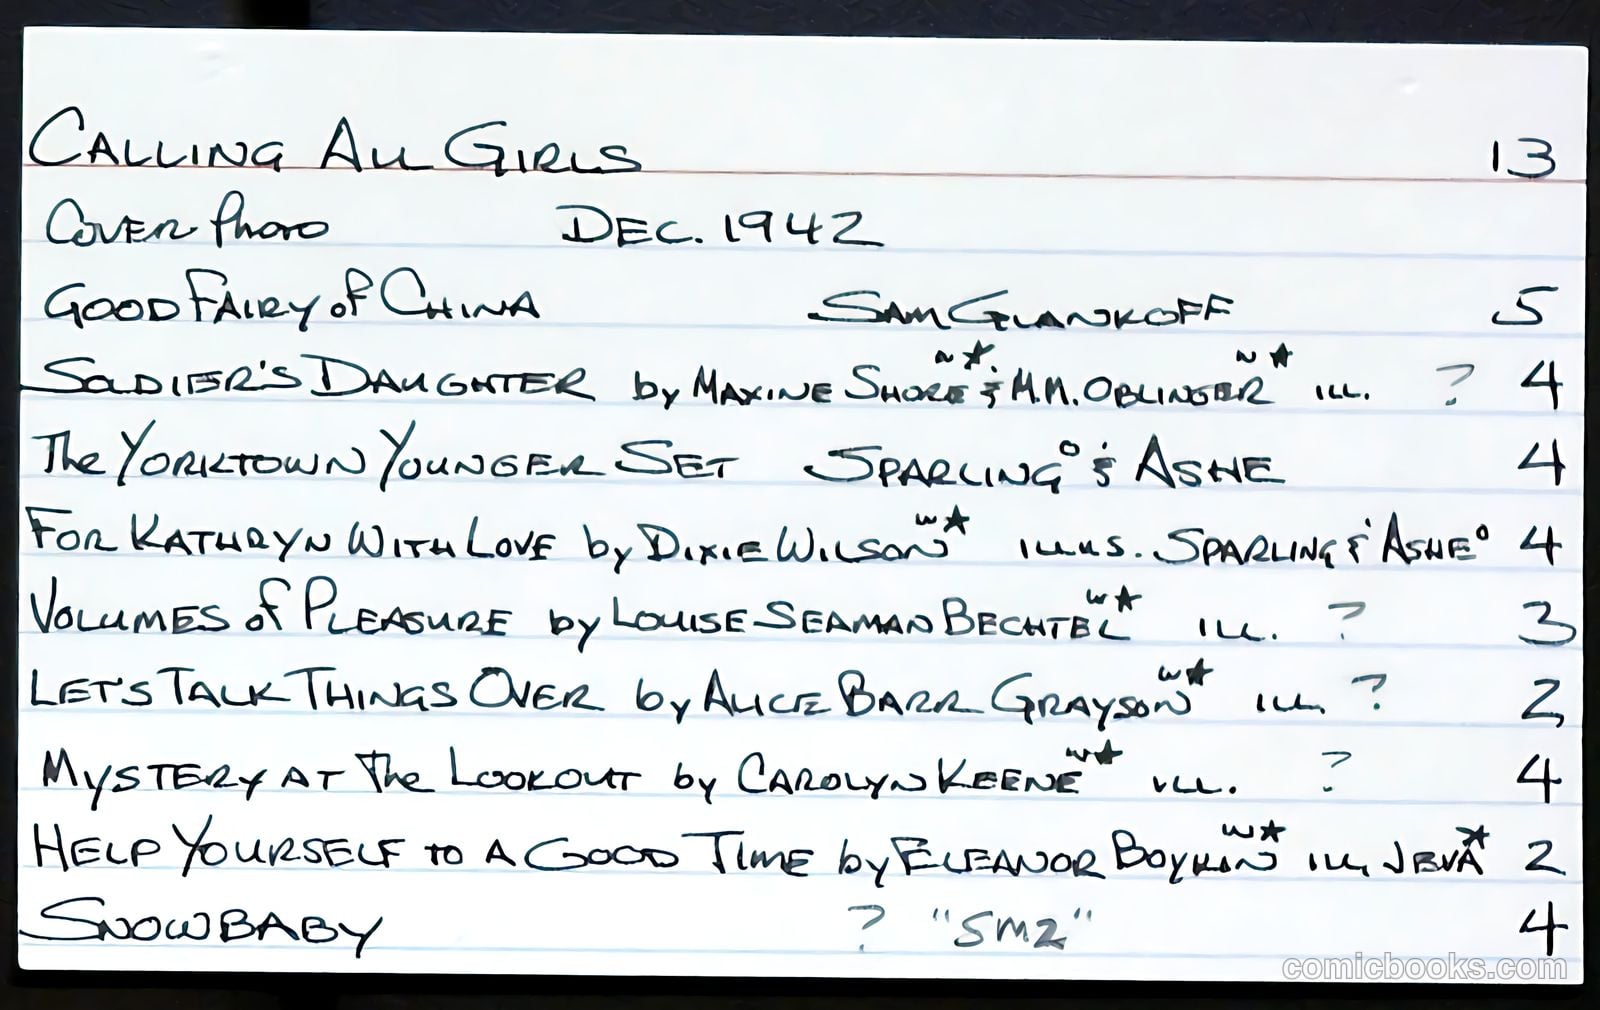 CALLING ALL GIRLS 13
COVER Photo DEC. 1942
GOOD FAIRY of CHINA SAM GLANKOFF 5
SOLDIER'S DAUGHTER by MAXINE SHORE w★ & M.M. OBLINGER w★ ILL. ? 4
The YORKTOWN YOUNGER SET SPARLING° & ASHE 4
FOR KATHRYN WITH LOVE by DIXIE WILSON w★ ILLUS. SPARLING & ASHE° 4
VOLUMES of PLEASURE by LOUISE SEAMAN BECHTEL w★ ILL. ? 3
LET'S TALK THINGS OVER by ALICE BARR GRAYSON w★ ILL. ? 2
MYSTERY AT The LOOKOUT by CAROLYN KEENE w★ ILL. ? 4
HELP YOURSELF TO A GOOD TIME by ELEANOR BOYKIN w★ ILL, JEVA★ 2
SNOWBABY ? "SMZ" 4
comicbooks.com